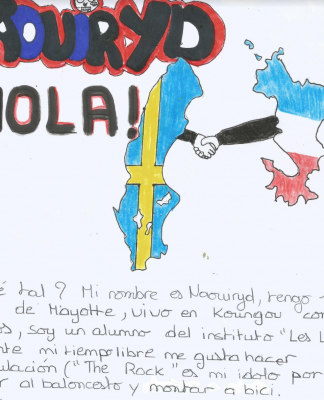 OURYD
HOLA!
é tal? Mi nombre es Naouryd, tengo
de Mayotte, vivo en Koungou con
os, soy un alumno del instituto "Les L
nte mi tiempo libre me gusta hacer
ulación ("The Rock" es mi idolo por
r al baloncesto y montar a bici.